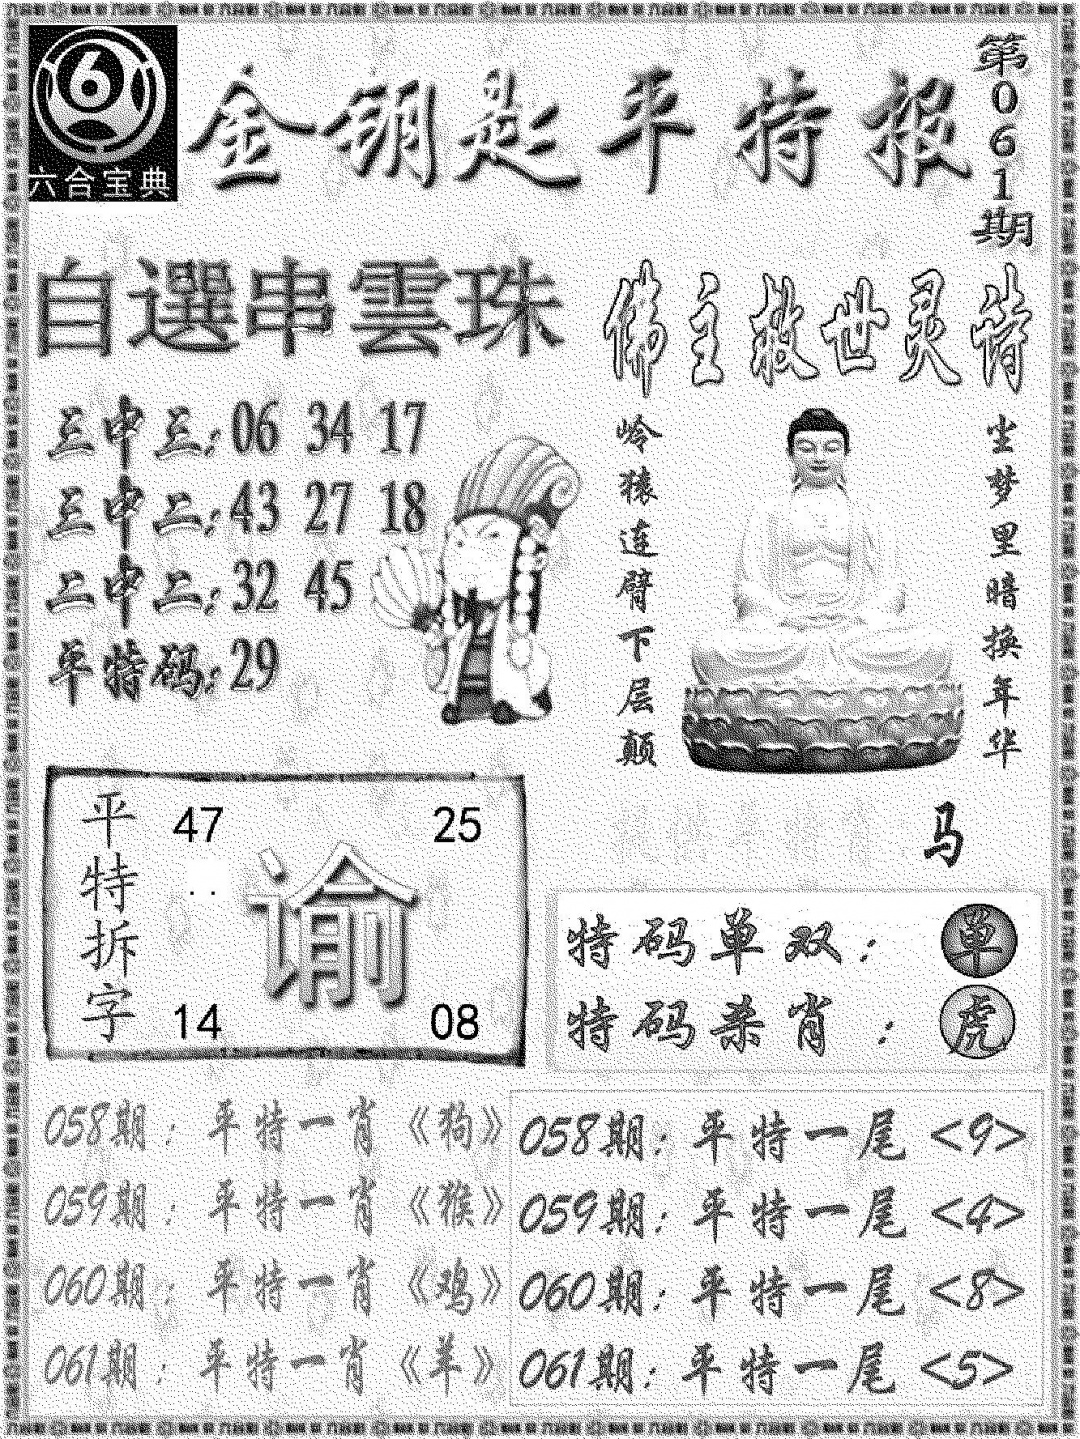 六合宝典
金钥匙平特报
第061期
自選串雲珠
三中三:06 34 17
三中二:43 27 18
二中二:32 45
平特码:29
佛主救世灵诗
岭猿连臂下层颠
尘梦里暗换年华
马
平特拆字
47 25
谕
14 08
特码单双: 单
特码杀肖: 虎
058期:平特一肖《狗》
059期:平特一肖《猴》
060期:平特一肖《鸡》
061期:平特一肖《羊》
058期:平特一尾<9>
059期:平特一尾<4>
060期:平特一尾<8>
061期:平特一尾<5>